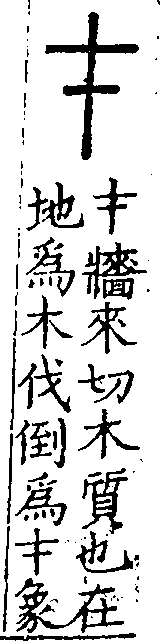 𰀁
牆來切木質也在
地爲木伐倒爲
象